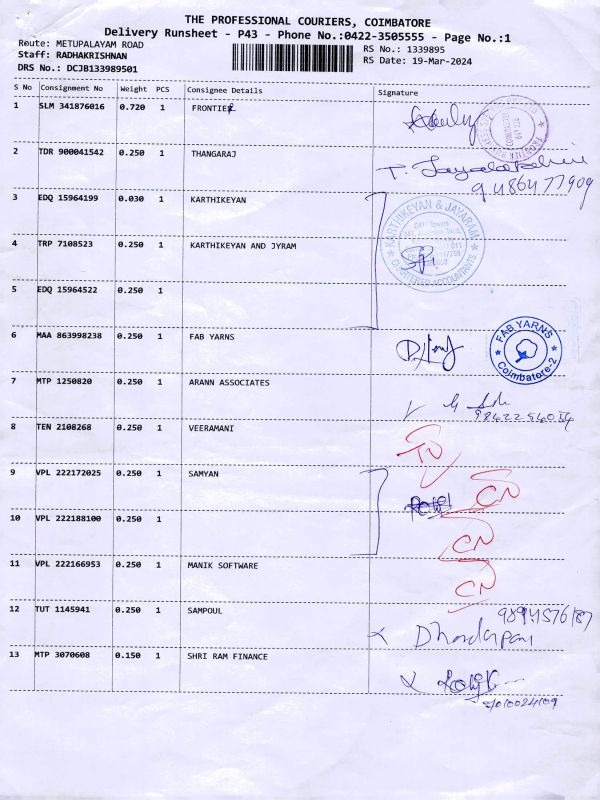 THE PROFESSIONAL COURIERS, COIMBATORE
Delivery Runsheet - P43 - Phone No.:0422-3505555 - Page No.:1
Route: METUPALAYAM ROAD
RS No.: 1339895
Staff: RADHAKRISHNAN
RS Date: 19-Mar-2024
DRS No.: DCJB133989501
S No Consignment No Weight PCS Consignee Details Signature
1 SLM 341876016 0.720 1 FRONTIER
2 TDR 900041542 0.250 1 THANGARAJ
9486477909
3 EDQ 15964199 0.030 1 KARTHIKEYAN
KARTHIKEYAN & JAYARAM
CHARTERED ACCOUNTANTS
4 TRP 7108523 0.250 1 KARTHIKEYAN AND JYRAM
5 EDQ 15964522 0.250 1
6 MAA 863998238 0.250 1 FAB YARNS
FAB YARNS
Coimbatore-2
7 MTP 1250820 0.250 1 ARANN ASSOCIATES
8 TEN 2108268 0.250 1 VEERAMANI
9 VPL 222172025 0.250 1 SAMYAN
CN
10 VPL 222188100 0.250 1
CN
11 VPL 222166953 0.250 1 MANIK SOFTWARE
CN
12 TUT 1145941 0.250 1 SAMPOUL
Dhandapani
13 MTP 3070608 0.150 1 SHRI RAM FINANCE